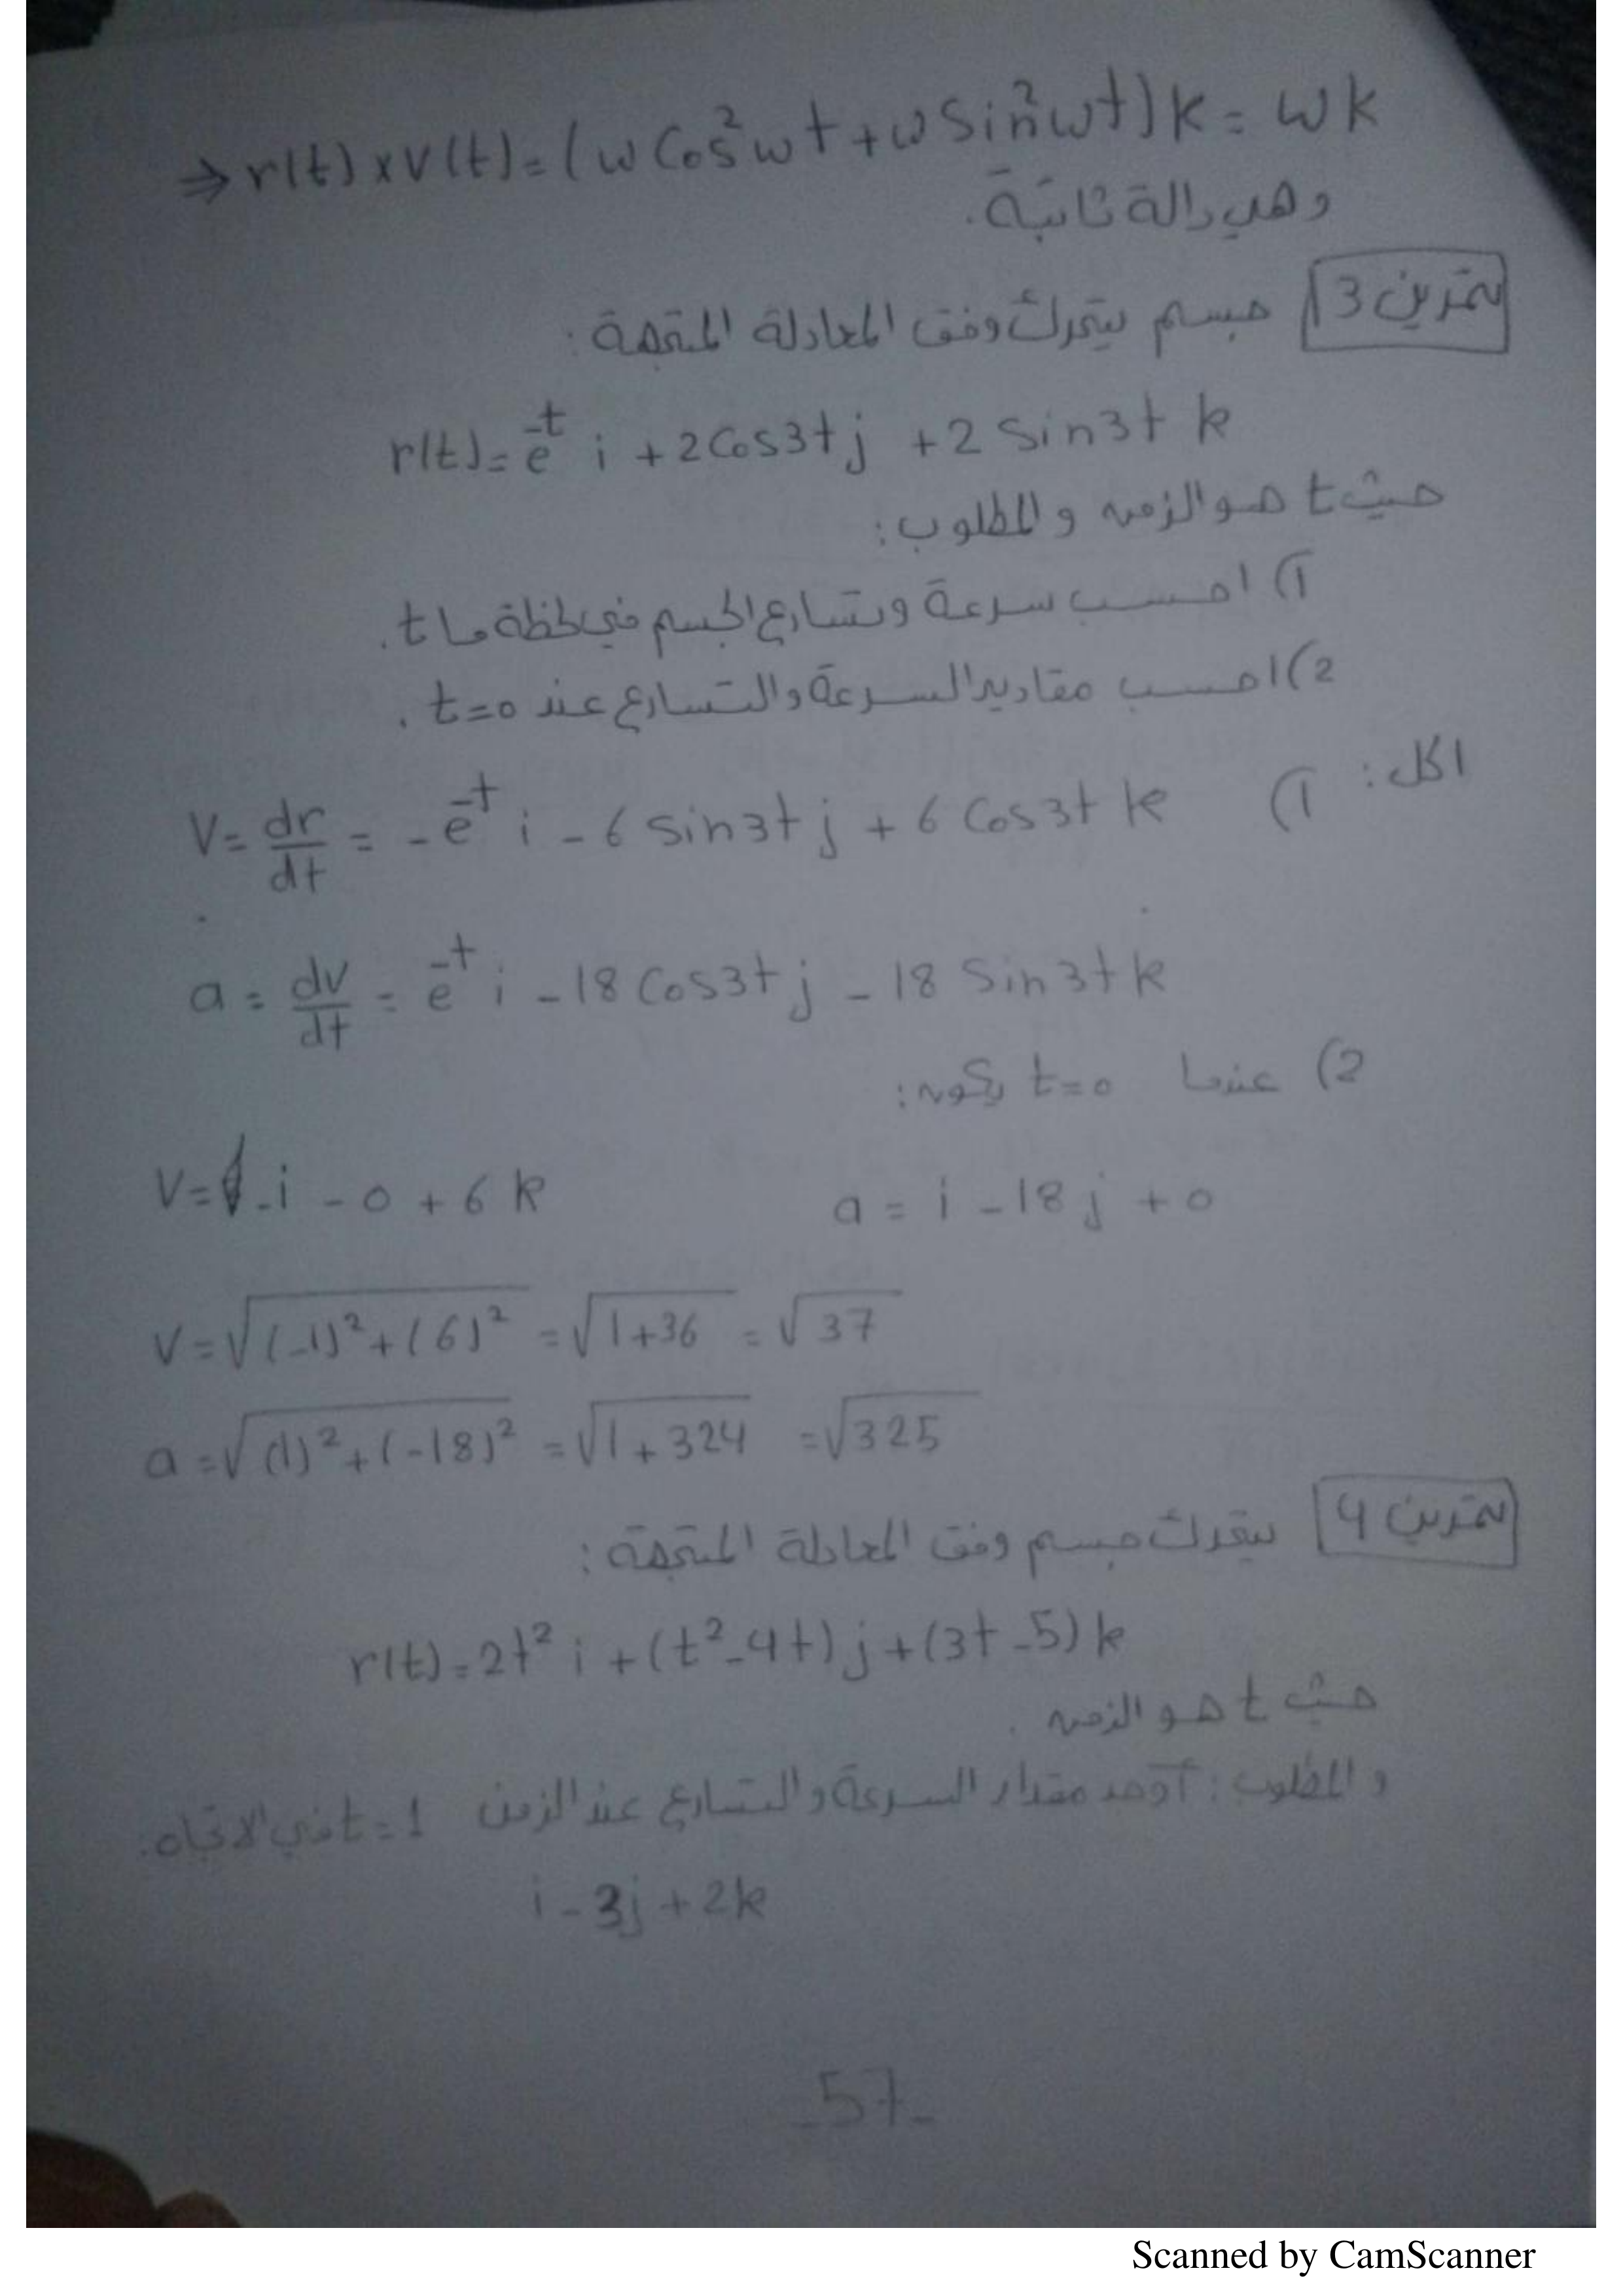 ⇒ r(t) x v(t) = (ω Cos²ωt + ω Sin²ωt) k = ω k
وهي دالة ثابتة.
تمرين 3 جسم يتحرك وفق المعادلة المتجهة:
r(t) = e^-t i + 2 Cos3t j + 2 Sin3t k
حيث t هو الزمن والمطلوب:
1) احسب سرعة وتسارع الجسم في لحظة ما t.
2) احسب مقادير السرعة والتسارع عند t=0.
الحل: 1) V = dr/dt = -e^-t i - 6 Sin3t j + 6 Cos3t k
a = dv/dt = e^-t i - 18 Cos3t j - 18 Sin3t k
2) عندما t=0 يكون:
V = -i - 0 + 6 k a = i - 18 j + 0
V = √((-1)² + (6)²) = √(1+36) = √37
a = √((1)² + (-18)²) = √(1+324) = √325
تمرين 4 يتحرك جسم وفق المعادلة المتجهة:
r(t) = 2t² i + (t² - 4t) j + (3t - 5) k
حيث t هو الزمن.
والمطلوب: أوجد مقدار السرعة والتسارع عند الزمن t = 1 في الاتجاه.
i - 3j + 2k
-57-
Scanned by CamScanner